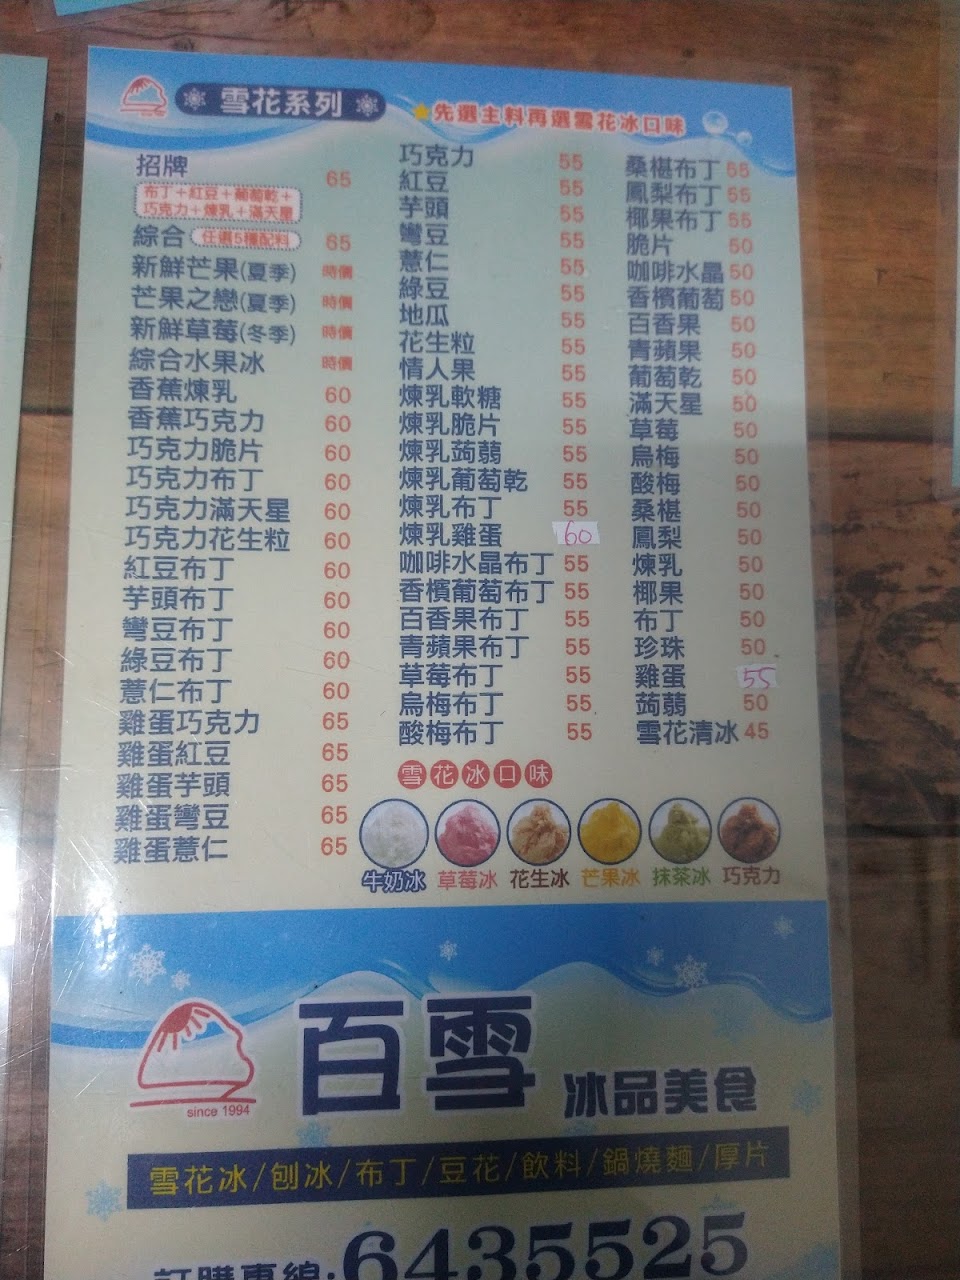 雪花系列
★先選主料再選雪花冰口味
招牌 65
布丁+紅豆+葡萄乾+
巧克力+煉乳+滿天星
綜合 任選5種配料 65
新鮮芒果(夏季) 時價
芒果之戀(夏季) 時價
新鮮草莓(冬季) 時價
綜合水果冰 時價
香蕉煉乳 60
香蕉巧克力 60
巧克力脆片 60
巧克力布丁 60
巧克力滿天星 60
巧克力花生粒 60
紅豆布丁 60
芋頭布丁 60
彎豆布丁 60
綠豆布丁 60
薏仁布丁 60
雞蛋巧克力 65
雞蛋紅豆 65
雞蛋芋頭 65
雞蛋彎豆 65
雞蛋薏仁 65
巧克力 55
紅豆 55
芋頭 55
彎豆 55
薏仁 55
綠豆 55
地瓜 55
花生粒 55
情人果 55
煉乳軟糖 55
煉乳脆片 55
煉乳蒟蒻 55
煉乳葡萄乾 55
煉乳布丁 55
煉乳雞蛋 60
咖啡水晶布丁 55
香檳葡萄布丁 55
百香果布丁 55
青蘋果布丁 55
草莓布丁 55
烏梅布丁 55
酸梅布丁 55
桑椹布丁 55
鳳梨布丁 55
椰果布丁 55
脆片 50
咖啡水晶 50
香檳葡萄 50
百香果 50
青蘋果 50
葡萄乾 50
滿天星 50
草莓 50
烏梅 50
酸梅 50
桑椹 50
鳳梨 50
煉乳 50
椰果 50
布丁 50
珍珠 50
雞蛋 55
蒟蒻 50
雪花清冰 45
雪花冰口味
牛奶冰 草莓冰 花生冰 芒果冰 抹茶冰 巧克力
百雪 冰品美食
since 1994
雪花冰/刨冰/布丁/豆花/飲料/鍋燒麵/厚片
訂購專線:6435525